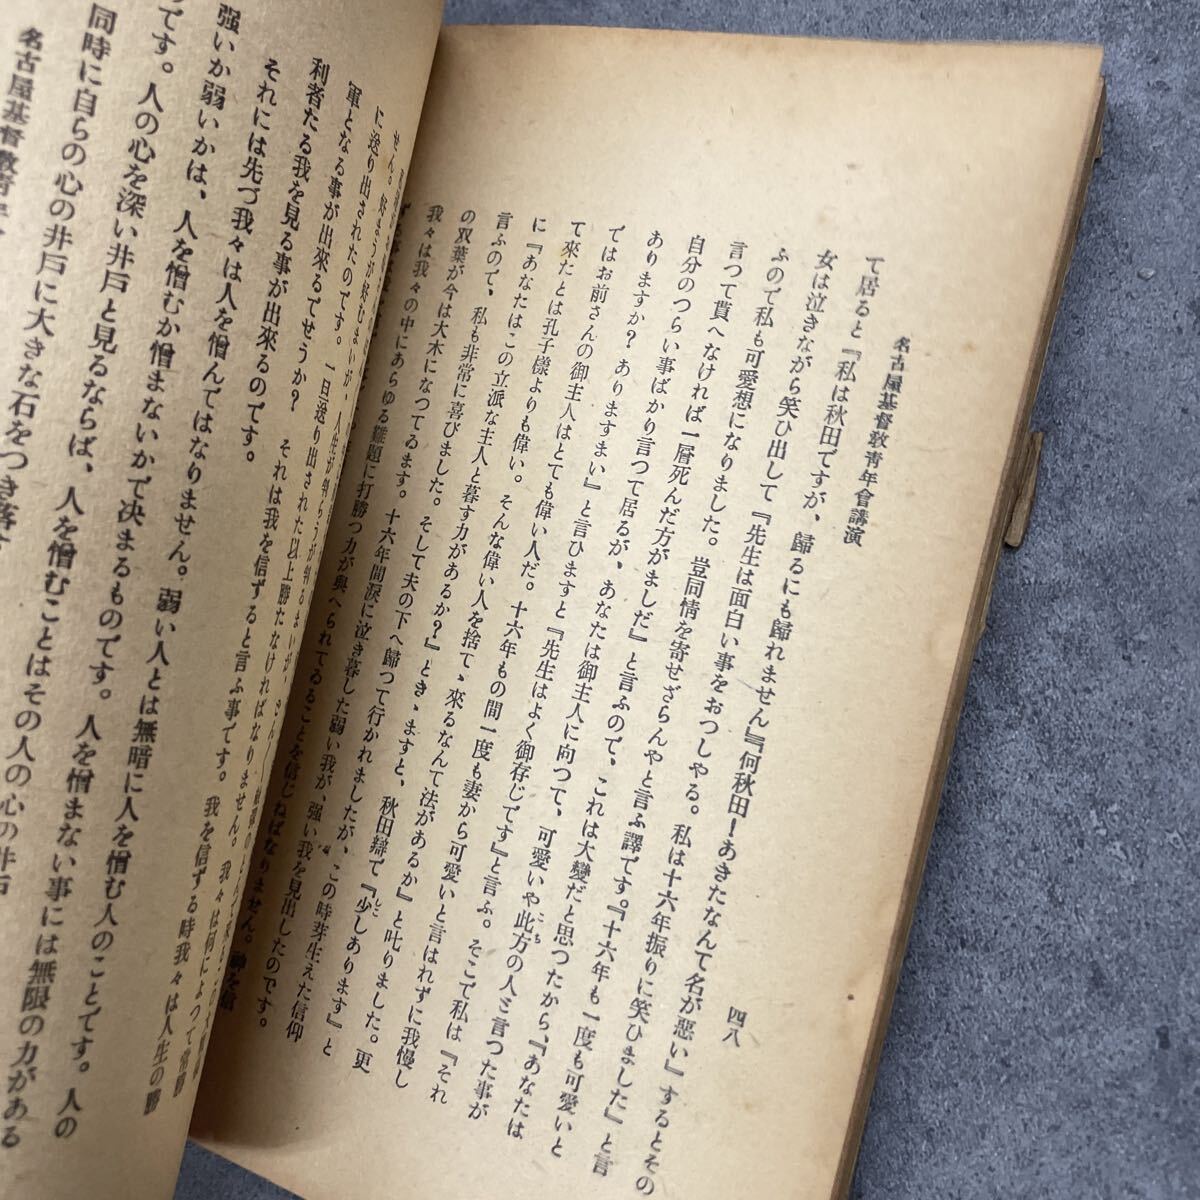 名古屋基督教青年會講演
四八
て居ると『私は秋田ですが、歸るにも歸れません』『何秋田！あきたなんて名が惡い』するとその
女は泣きながら笑ひ出して『先生は面白い事をおつしやる。私は十六年振りに笑ひました』と言
ふので私も可愛想になりました。豈同情を寄せざらんやと言ふ譯です。『十六年も一度も可愛いと
言つて貰へなければ一層死んだ方がましだ』と言ふので、これは大變だと思つたから、『あなたは
自分のつらい事ばかり言つて居るが、あなたは御主人に向つて、可愛いや此方の人と言つた事が
こち
ありますか？ありますまい』と言ひますと『先生はよく御存じです』と言ふ。そこで私は『それ
ではお前さんの御主人はとても偉い人だ。十六年もの間一度も妻から可愛いと言はれずに我慢し
て來たとは孔子樣よりも偉い。そんな偉い人を捨て、來るなんて法があるか』と叱りました。更
に『あなたはこの立派な主人と暮す力があるか？』とき、ますと、秋田辯で『少しあります』と
しこ
言ふので、私も非常に喜びました。そして夫の下へ歸つて行かれましたが、この時芽生えた信仰
の双葉が今は大木になつてゐます。十六年間涙に泣き暮した弱い我が、强い我を見出したのです。
我々は我々の中にあらゆる難題に打勝つ力が與へられてゐることを信じねばなりません。神を信
せん。好まうが好むまいが、人生が判らうが判るまいが、
に送り出されたのです。一旦送り出された以上勝たなければなりません。我々は何によつて常勝
軍となる事が出來るでせうか？それは我を信ずると言ふ事です。我を信ずる時我々は人生の勝
利者たる我を見る事が出來るのです。
それには先づ我々は人を憎んではなりません。弱い人とは無暗に人を憎む人のことです。人の
强いか弱いかは、人を憎むか憎まないかで決まるものです。人を憎まない事には無限の力がある
のです。人の心を深い井戸と見るならば、人を憎むことはその人の心の井
同時に自らの心の井戸に大きな石をつき落
名古屋基督教靑年